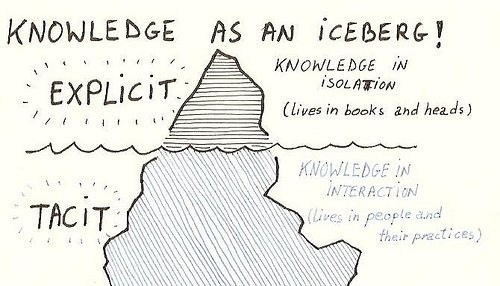 KNOWLEDGE AS AN ICEBERG!
EXPLICIT
KNOWLEDGE IN
ISOLATION
(lives in books and heads)
TACIT
KNOWLEDGE IN
INTERACTION
(lives in people and
their practices)